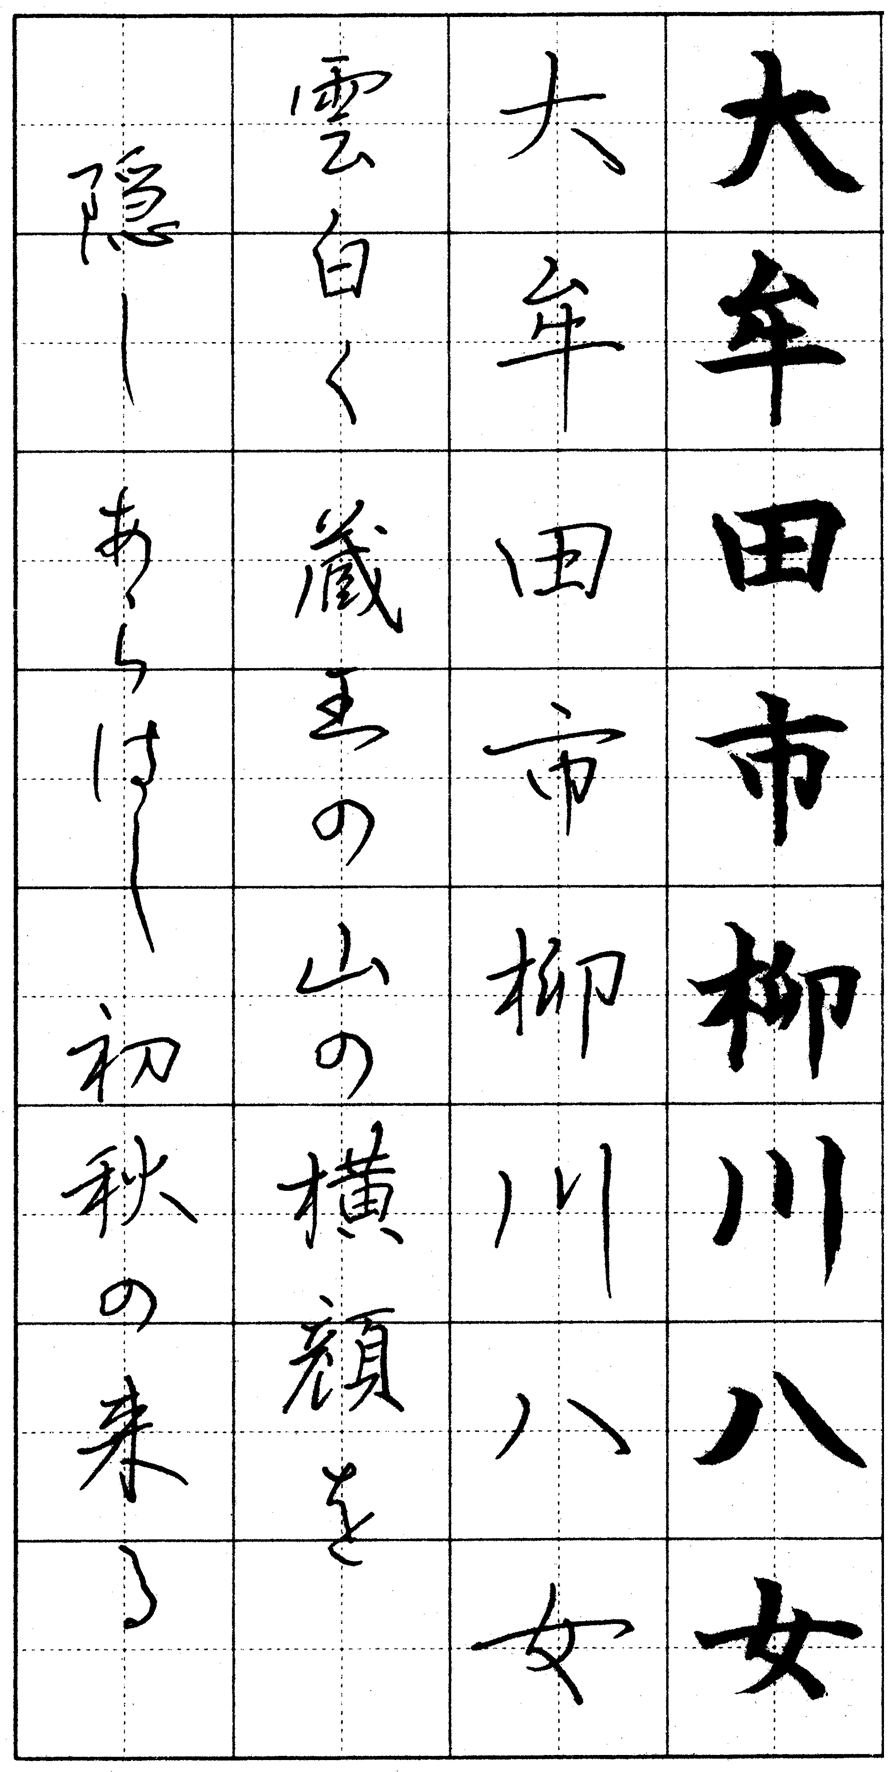 大牟田市柳川八女
大牟田市柳川八女
雲白く蔵王の山の横顔を
隠しあらはし初秋の来る